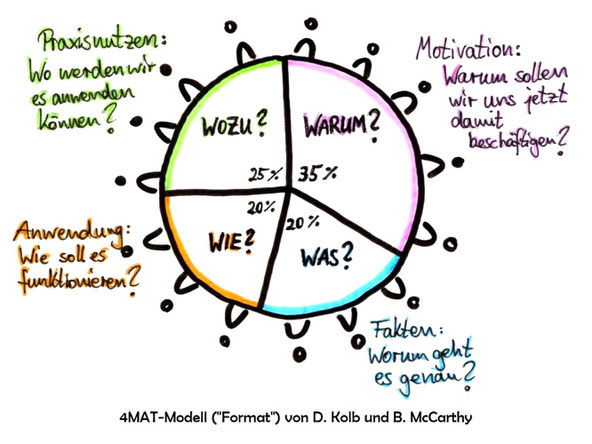 Praxisnutzen:
Wo werden wir
es anwenden
können?
Motivation:
Warum sollen
wir uns jetzt
damit
beschäftigen?
WOZU?
WARUM?
25%
35%
20%
20%
WIE?
WAS?
Anwendung:
Wie soll es
funktionieren?
Fakten:
Worum geht
es genau?
4MAT-Modell ("Format") von D. Kolb und B. McCarthy